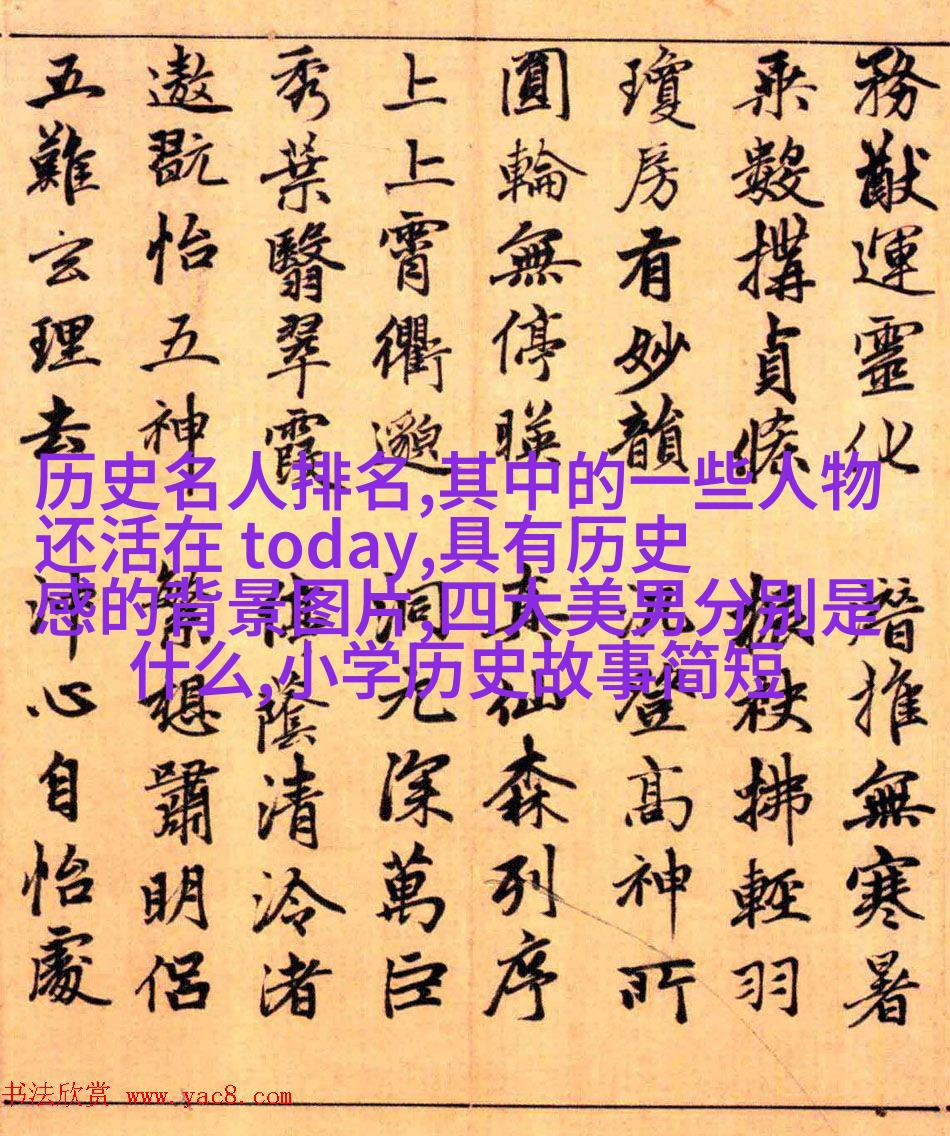 務猷運靈化潛推無寒暑
乘數搆貞條振袂拂輕羽
瓊房有妙韻登高神所
圓輪無停暎真仙森列序
上上霄衢邈洞元深萬巨
秀葉翳翠霞陰清泠渚
遨翫怡五神繁想嘯明侶
五難玄理去沖心自怡處
历史名人排名,其中的一些人物
还活在 today,具有历史
感的背景图片,四大美男分别是
什么,小学历史故事简短
书法欣赏 www.yac8.com